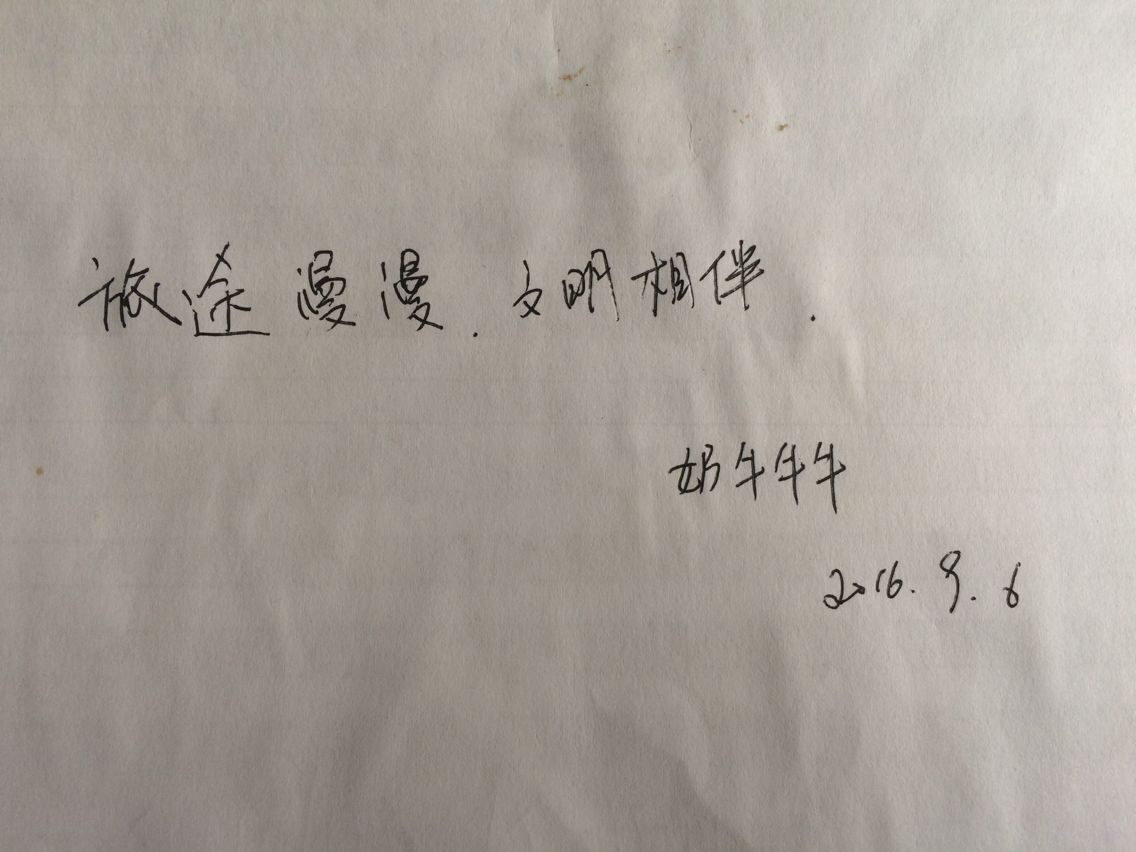 旅途漫漫.文明相伴.
奶牛牛牛
2016.9.6